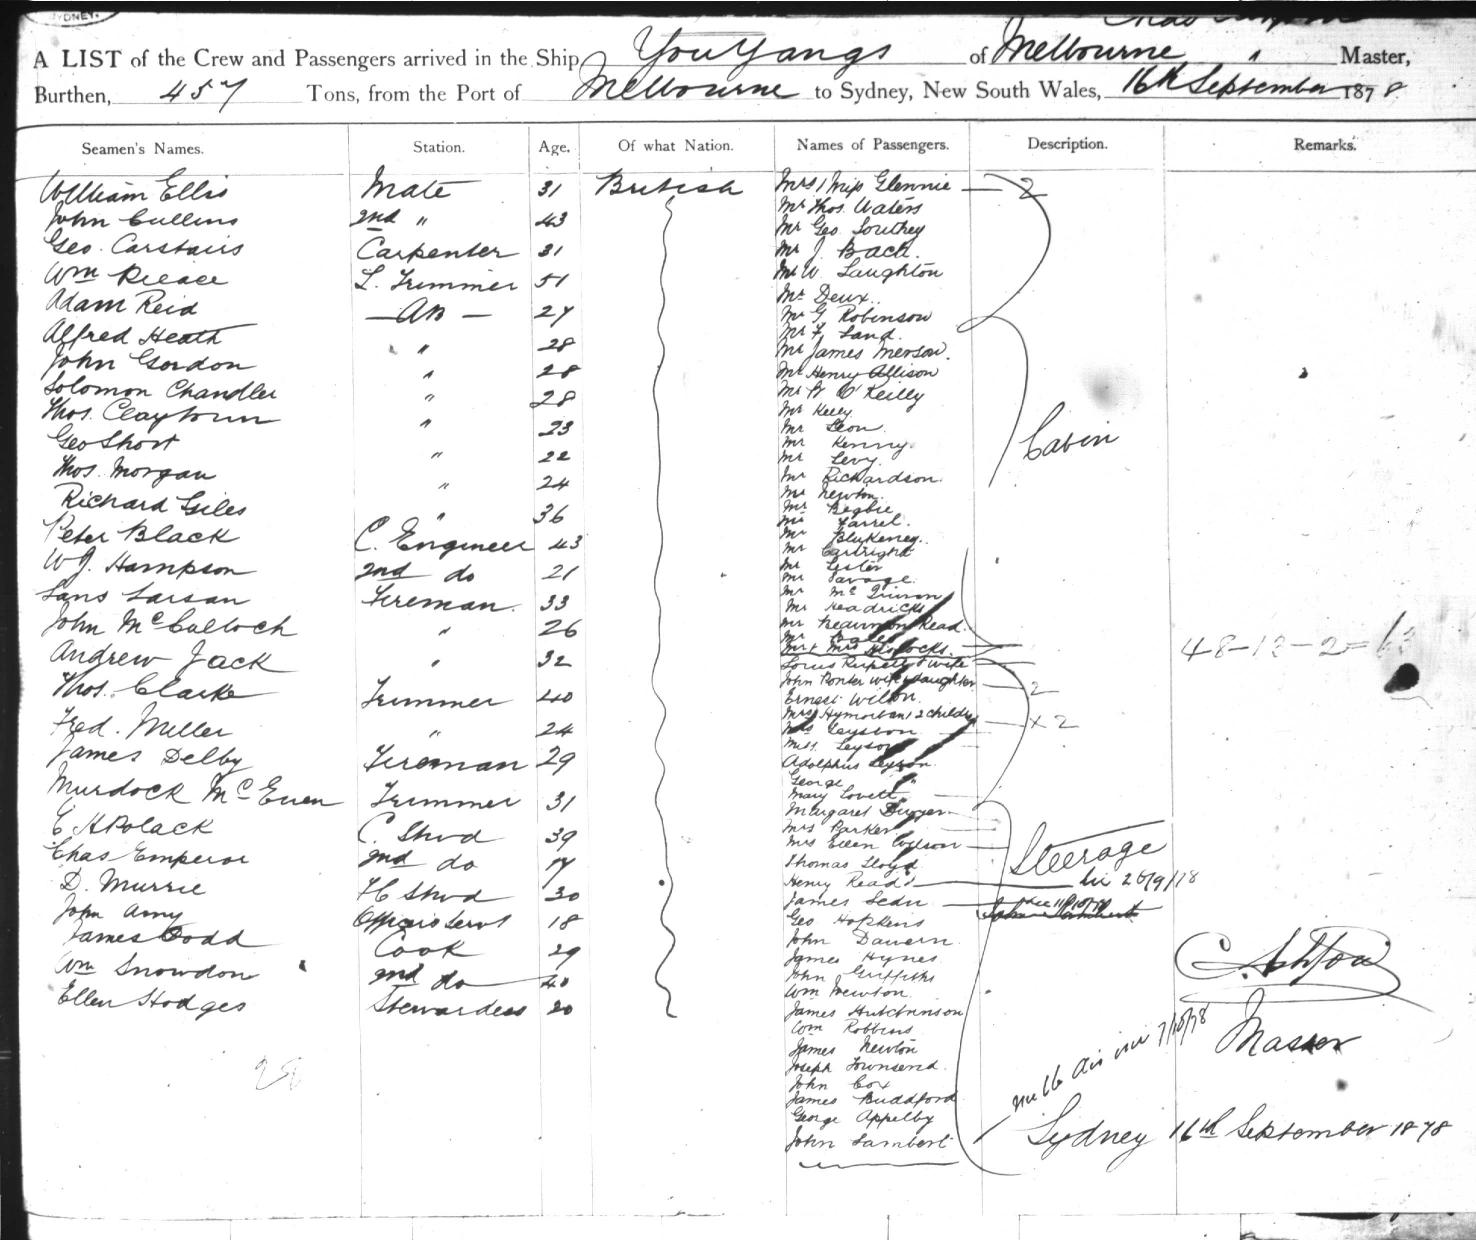 SYDNEY.
A LIST of the Crew and Passengers arrived in the Ship You Yangs of Melbourne " Master,
Burthen, 457 Tons, from the Port of Melbourne to Sydney, New South Wales, 16th September 1878
Seamen's Names. Station. Age. Of what Nation. Names of Passengers. Description. Remarks.
William Ellis Mate 31 British
John Cullins 2nd " 43
Geo. Carstairs Carpenter 31
Wm Pleace L. Trimmer 51
Adam Reid — AB — 27
Alfred Heath " 28
John Gordon " 28
Solomon Chandler " 28
Thos. Claytown " 23
Geo Short " 22
Thos. Morgan " 24
Richard Giles " 36
Peter Black C. Engineer 43
W J. Hampson 2nd do 21
Lans Larsan Fireman 33
John McCulloch " 26
Andrew Jack " 32
Thos. Clarke Trimmer 40
Fred. Miller " 24
James Delby Fireman 29
Murdock McEuen Trimmer 31
C H Polack C. Stwd 39
Chas Emperor 2nd do 17
D. Murrie FC Stwd 30
John Amy Officers Servt 18
James Dodd Cook 29
Wm Snowdon 2nd do 40
Ellen Hodges Stewardess 20
28
Mrs / Miss Glennie — 2
Mr Thos. Waters
Mr Geo Southey
Mr J. Back.
Mr W. Laughton
Mr Deux.
Mr G Robinson
Mr F. Land.
Mr James Merson.
Mr Henry Allison
Mr W O'Keilly
Mr Kelly
Mr Leon.
Mr Kenny.
Mr Levy.
Mr Richardson.
Mr Newton.
Mr Begbie
Mr Farrel.
Mr Blukeney.
Mr Cartright
Mr Lester
Mr Savage.
Mr
Mr Headricks
Mr Beaumon Read.
Mr
Mr & Mrs
Louis & wife
John Ponter wife & daughter — 2
Ernest Wilton.
Mrs 2 childn — x 2
Mrs Leysson
Miss. Leyson
Adolphus Leyson.
George "
Mary Lovett
Margaret Dwyer
Mrs Parker
Mrs Ellen Wilson
Thomas Lloyd
Henry Read
James
Geo Hopkins
John Davern
James Hynes
John Griffiths
Wm Newton.
James Hutchinson
Wm Robbins
James Newton
Joseph Townsend.
John Cox
James Buddford
George Appelby
John Lambert
Cabin
48-13-2=63
Steerage
26/9/78
C. Ashton
Master
7/10/78
Sydney 16th September 1878